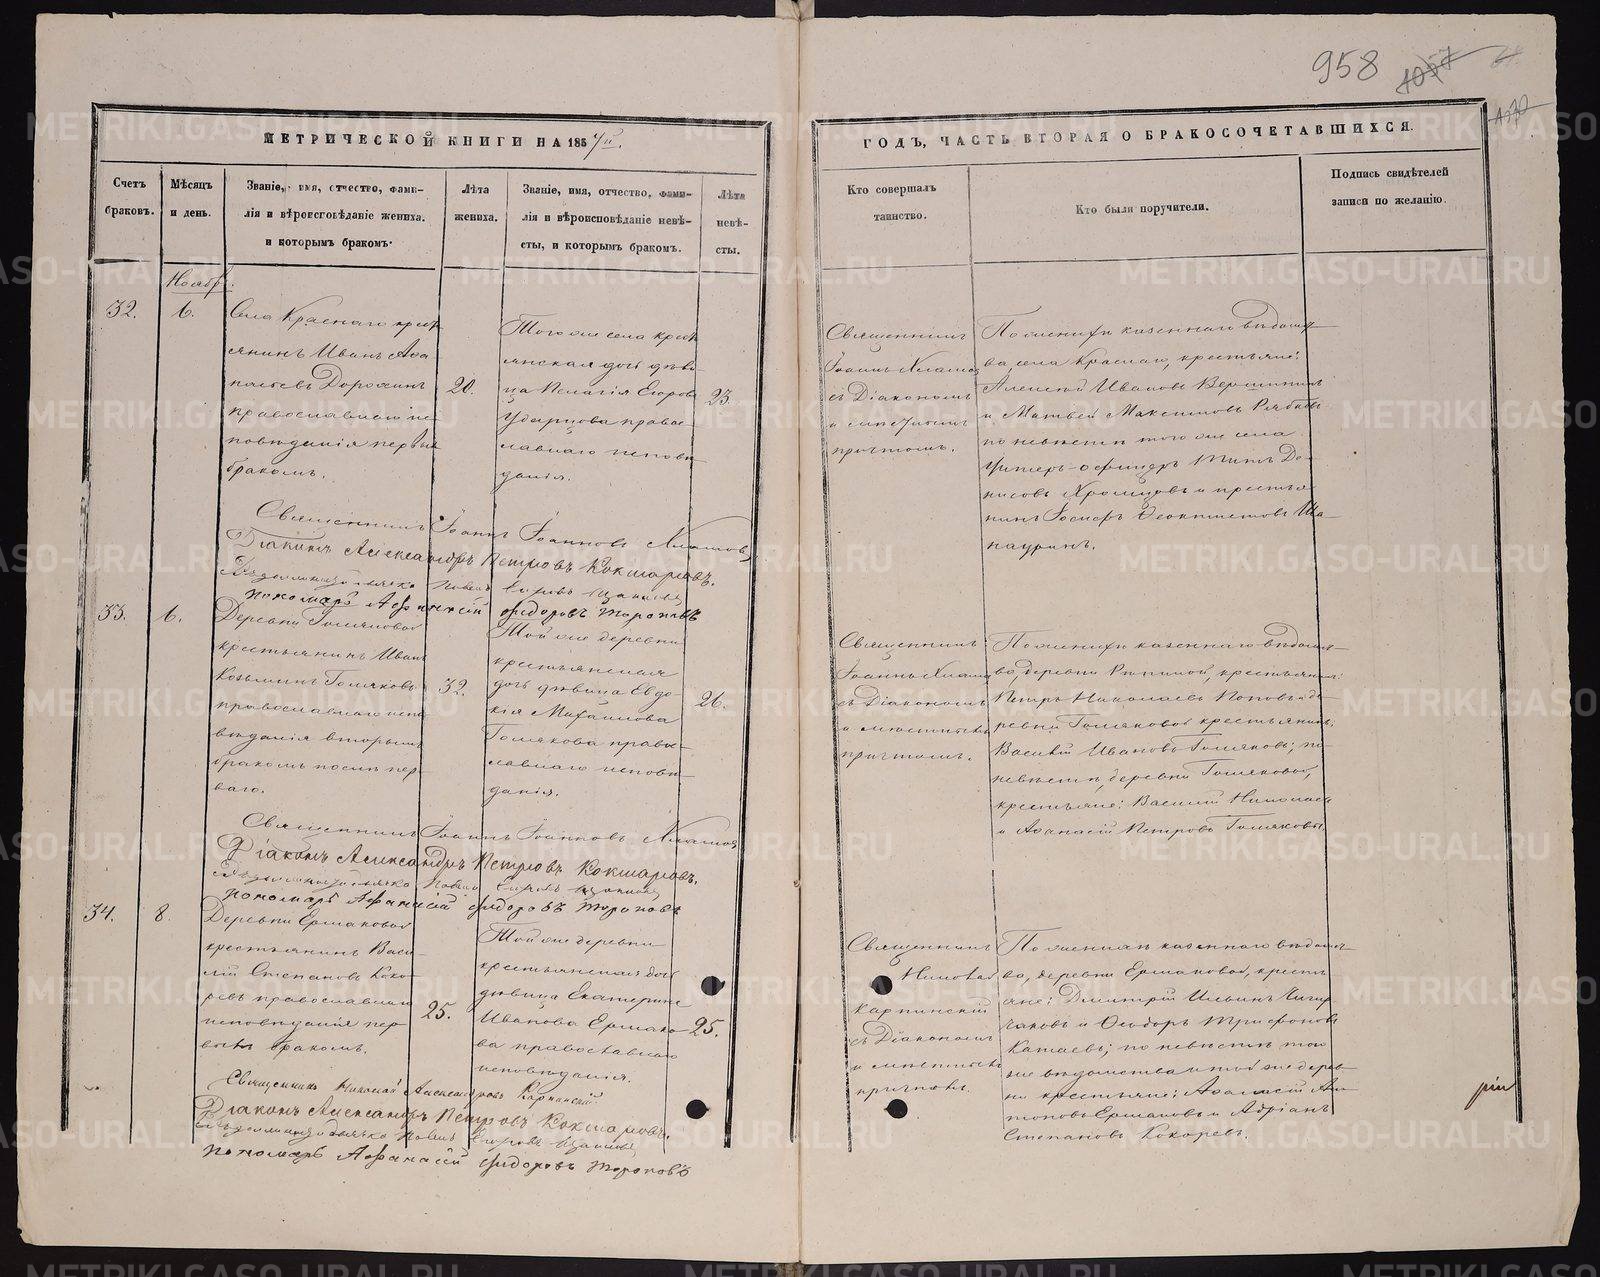 958
МЕТРИЧЕСКОЙ КНИГИ НА 1857й.
ГОДЪ, ЧАСТЬ ВТОРАЯ О БРАКОСОЧЕТАВШИХСЯ.
Счетъ браковъ.
Мѣсяцъ и день.
Званіе, имя, отчество, фами-
лія и вѣроисповѣданіе жениха.
и которымъ бракомъ.
Лѣта жениха.
Званіе, имя, отчество, фами-
лія и вѣроисповѣданіе невѣ-
сты, и которымъ бракомъ.
Лѣта
невѣ-
сты.
Кто совершалъ
таинство.
Кто были поручители.
Подпись свидѣтелей
записи по желанію.
Ноябр.
32.
6.
Села Краснаго крест
янинъ Иванъ Афа
насьевъ Дорохинъ
православнаго ис
повѣданія первымъ
бракомъ.
20.
Того же села крест
янская дочь дѣви
ца Пелагія Егорова
православнаго исповѣ
данія.
23.
Священникъ
Іоаннъ
съ Діакономъ
и
причтомъ.
По женихѣ казеннаго вѣдомст
ва села Краснаго, крестьяне:
Алексѣй Ивановъ Вершининъ
и Матвей Максимовъ Рябковъ
по невѣстѣ того же села
Унтеръ-офицеръ Титъ Де-
нисовъ и крестья
нинъ Іосифъ Ѳеоктистовъ Ша
пауринъ.
Священникъ Іоаннъ Іоанновъ
Діаконъ Александръ Петровъ Кокшаровъ.
Пономарь Афанасій Фидоровъ Тороповъ
33.
6.
Деревни Голяковой
крестьянинъ Иванъ
Козьминъ Голяковъ
православнаго испо
вѣданія вторымъ
бракомъ послѣ пер-
ваго.
32.
Той же деревни
крестьянская
дочь дѣвица Евдо-
кія Михаилова
Голякова право-
славнаго исповѣ-
данія.
26.
Священникъ
Іоаннъ
съ Діакономъ
и
причтомъ.
По женихѣ казеннаго вѣдомст-
ва, деревни крестьяне:
Петръ Николаевъ Поповъ и де-
ревни Голяковой крестьянинъ
Василій Ивановъ Голяковъ; по
невѣстѣ, деревни Голяковой,
крестьяне: Василій Николаевъ
и Афанасій Петровъ Голяковы.
Священникъ Іоаннъ Іоанновъ
Діаконъ Александръ Петровъ Кокшаровъ.
Пономарь Афанасій Фидоровъ Тороповъ
34.
8.
Деревни Ермаковой
крестьянинъ Васи-
лій Степановъ Коко-
ревъ православнаго
исповѣданія пер-
вымъ бракомъ.
25.
Той же деревни
крестьянская дочь
дѣвица Екатерина
Иванова Ермако-
ва православнаго
исповѣданія.
25.
Священникъ
Николай
Карпинскій
съ Діакономъ
и
причтомъ.
По женихѣ казеннаго вѣдомст-
ва, деревни Ермаковой, кресть
яне: Димитрій Ильинъ
и Ѳеодоръ Трифоновъ
Катаевъ; по невѣстѣ того
же вѣдомства и той же дерев-
ни крестьяне: Афанасій Ан-
тоновъ Ермаковъ и Адріанъ
Степановъ Кокоревъ.
Священникъ Николай Александровъ Карпинскій
Діаконъ Александръ Петровъ Кокшаровъ.
Пономарь Афанасій Фидоровъ Тороповъ
METRIKI.GASO-URAL.RU